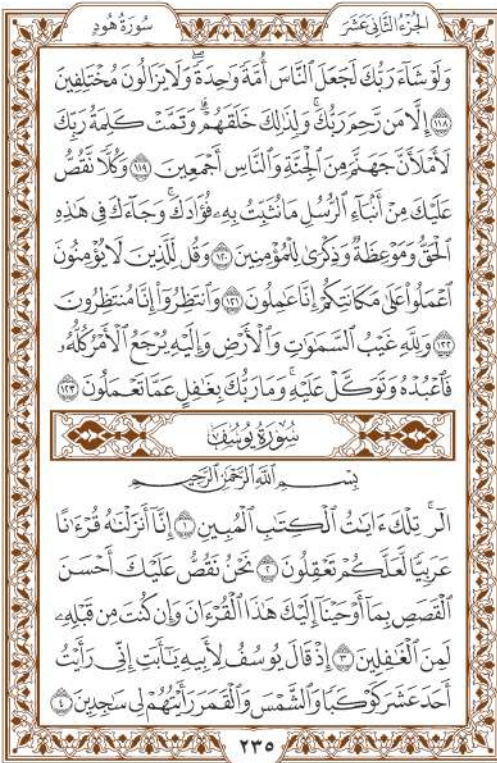 الجزء الثاني عشر
سورة هود
وَلَوْ شَآءَ رَبُّكَ لَجَعَلَ ٱلنَّاسَ أُمَّةً وَٰحِدَةً ۖ وَلَا يَزَالُونَ مُخْتَلِفِينَ
١١٨ إِلَّا مَن رَّحِمَ رَبُّكَ ۚ وَلِذَٰلِكَ خَلَقَهُمْ ۗ وَتَمَّتْ كَلِمَةُ رَبِّكَ
لَأَمْلَأَنَّ جَهَنَّمَ مِنَ ٱلْجِنَّةِ وَٱلنَّاسِ أَجْمَعِينَ ١١٩ وَكُلًّا نَّقُصُّ
عَلَيْكَ مِنْ أَنۢبَآءِ ٱلرُّسُلِ مَا نُثَبِّتُ بِهِۦ فُؤَادَكَ ۚ وَجَآءَكَ فِى هَٰذِهِ
ٱلْحَقُّ وَمَوْعِظَةٌ وَذِكْرَىٰ لِلْمُؤْمِنِينَ ١٢٠ وَقُل لِّلَّذِينَ لَا يُؤْمِنُونَ
ٱعْمَلُوا۟ عَلَىٰ مَكَانَتِكُمْ إِنَّا عَٰمِلُونَ ١٢١ وَٱنتَظِرُوٓا۟ إِنَّا مُنتَظِرُونَ
١٢٢ وَلِلَّهِ غَيْبُ ٱلسَّمَٰوَٰتِ وَٱلْأَرْضِ وَإِلَيْهِ يُرْجَعُ ٱلْأَمْرُ كُلُّهُۥ
فَٱعْبُدْهُ وَتَوَكَّلْ عَلَيْهِ ۚ وَمَا رَبُّكَ بِغَٰفِلٍ عَمَّا تَعْمَلُونَ ١٢٣
سورة يوسف
بِسْمِ ٱللَّهِ ٱلرَّحْمَٰنِ ٱلرَّحِيمِ
الٓر ۚ تِلْكَ ءَايَٰتُ ٱلْكِتَٰبِ ٱلْمُبِينِ ١ إِنَّآ أَنزَلْنَٰهُ قُرْءَٰنًا
عَرَبِيًّا لَّعَلَّكُمْ تَعْقِلُونَ ٢ نَحْنُ نَقُصُّ عَلَيْكَ أَحْسَنَ
ٱلْقَصَصِ بِمَآ أَوْحَيْنَآ إِلَيْكَ هَٰذَا ٱلْقُرْءَانَ وَإِن كُنتَ مِن قَبْلِهِۦ
لَمِنَ ٱلْغَٰفِلِينَ ٣ إِذْ قَالَ يُوسُفُ لِأَبِيهِ يَٰٓأَبَتِ إِنِّى رَأَيْتُ
أَحَدَ عَشَرَ كَوْكَبًا وَٱلشَّمْسَ وَٱلْقَمَرَ رَأَيْتُهُمْ لِى سَٰجِدِينَ ٤
٢٣٥